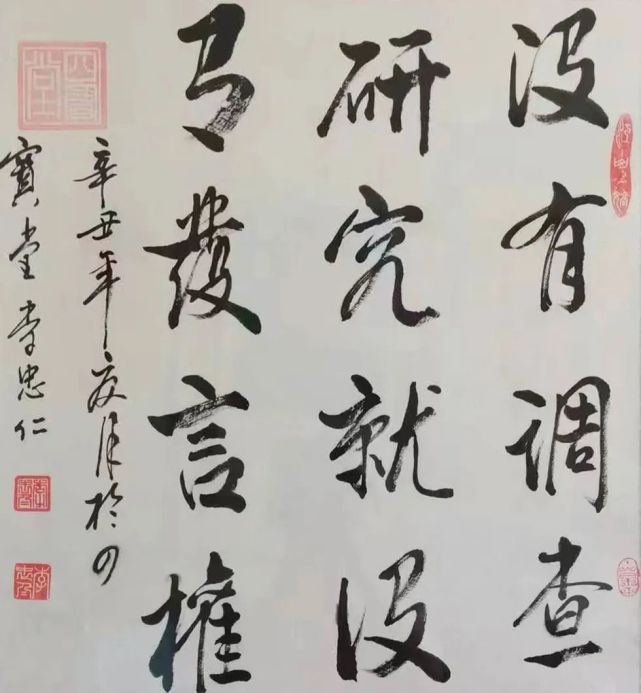 没有调查
研究就没
有發言權
辛丑年夏月於四
寶堂李忠仁